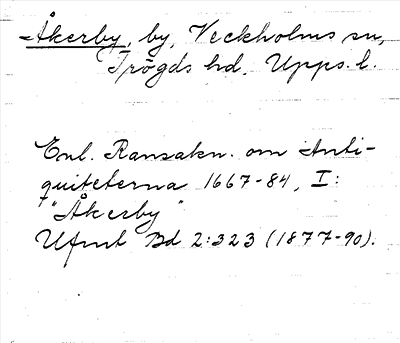 Åkerby, by, Veckholms sn,
Trögds hd, Upps. l.
Enl. Ransakn. om Anti-
quiteterna 1667-84, I:
"Åkerby"
Ufmt Bd 2:323 (1877-90).